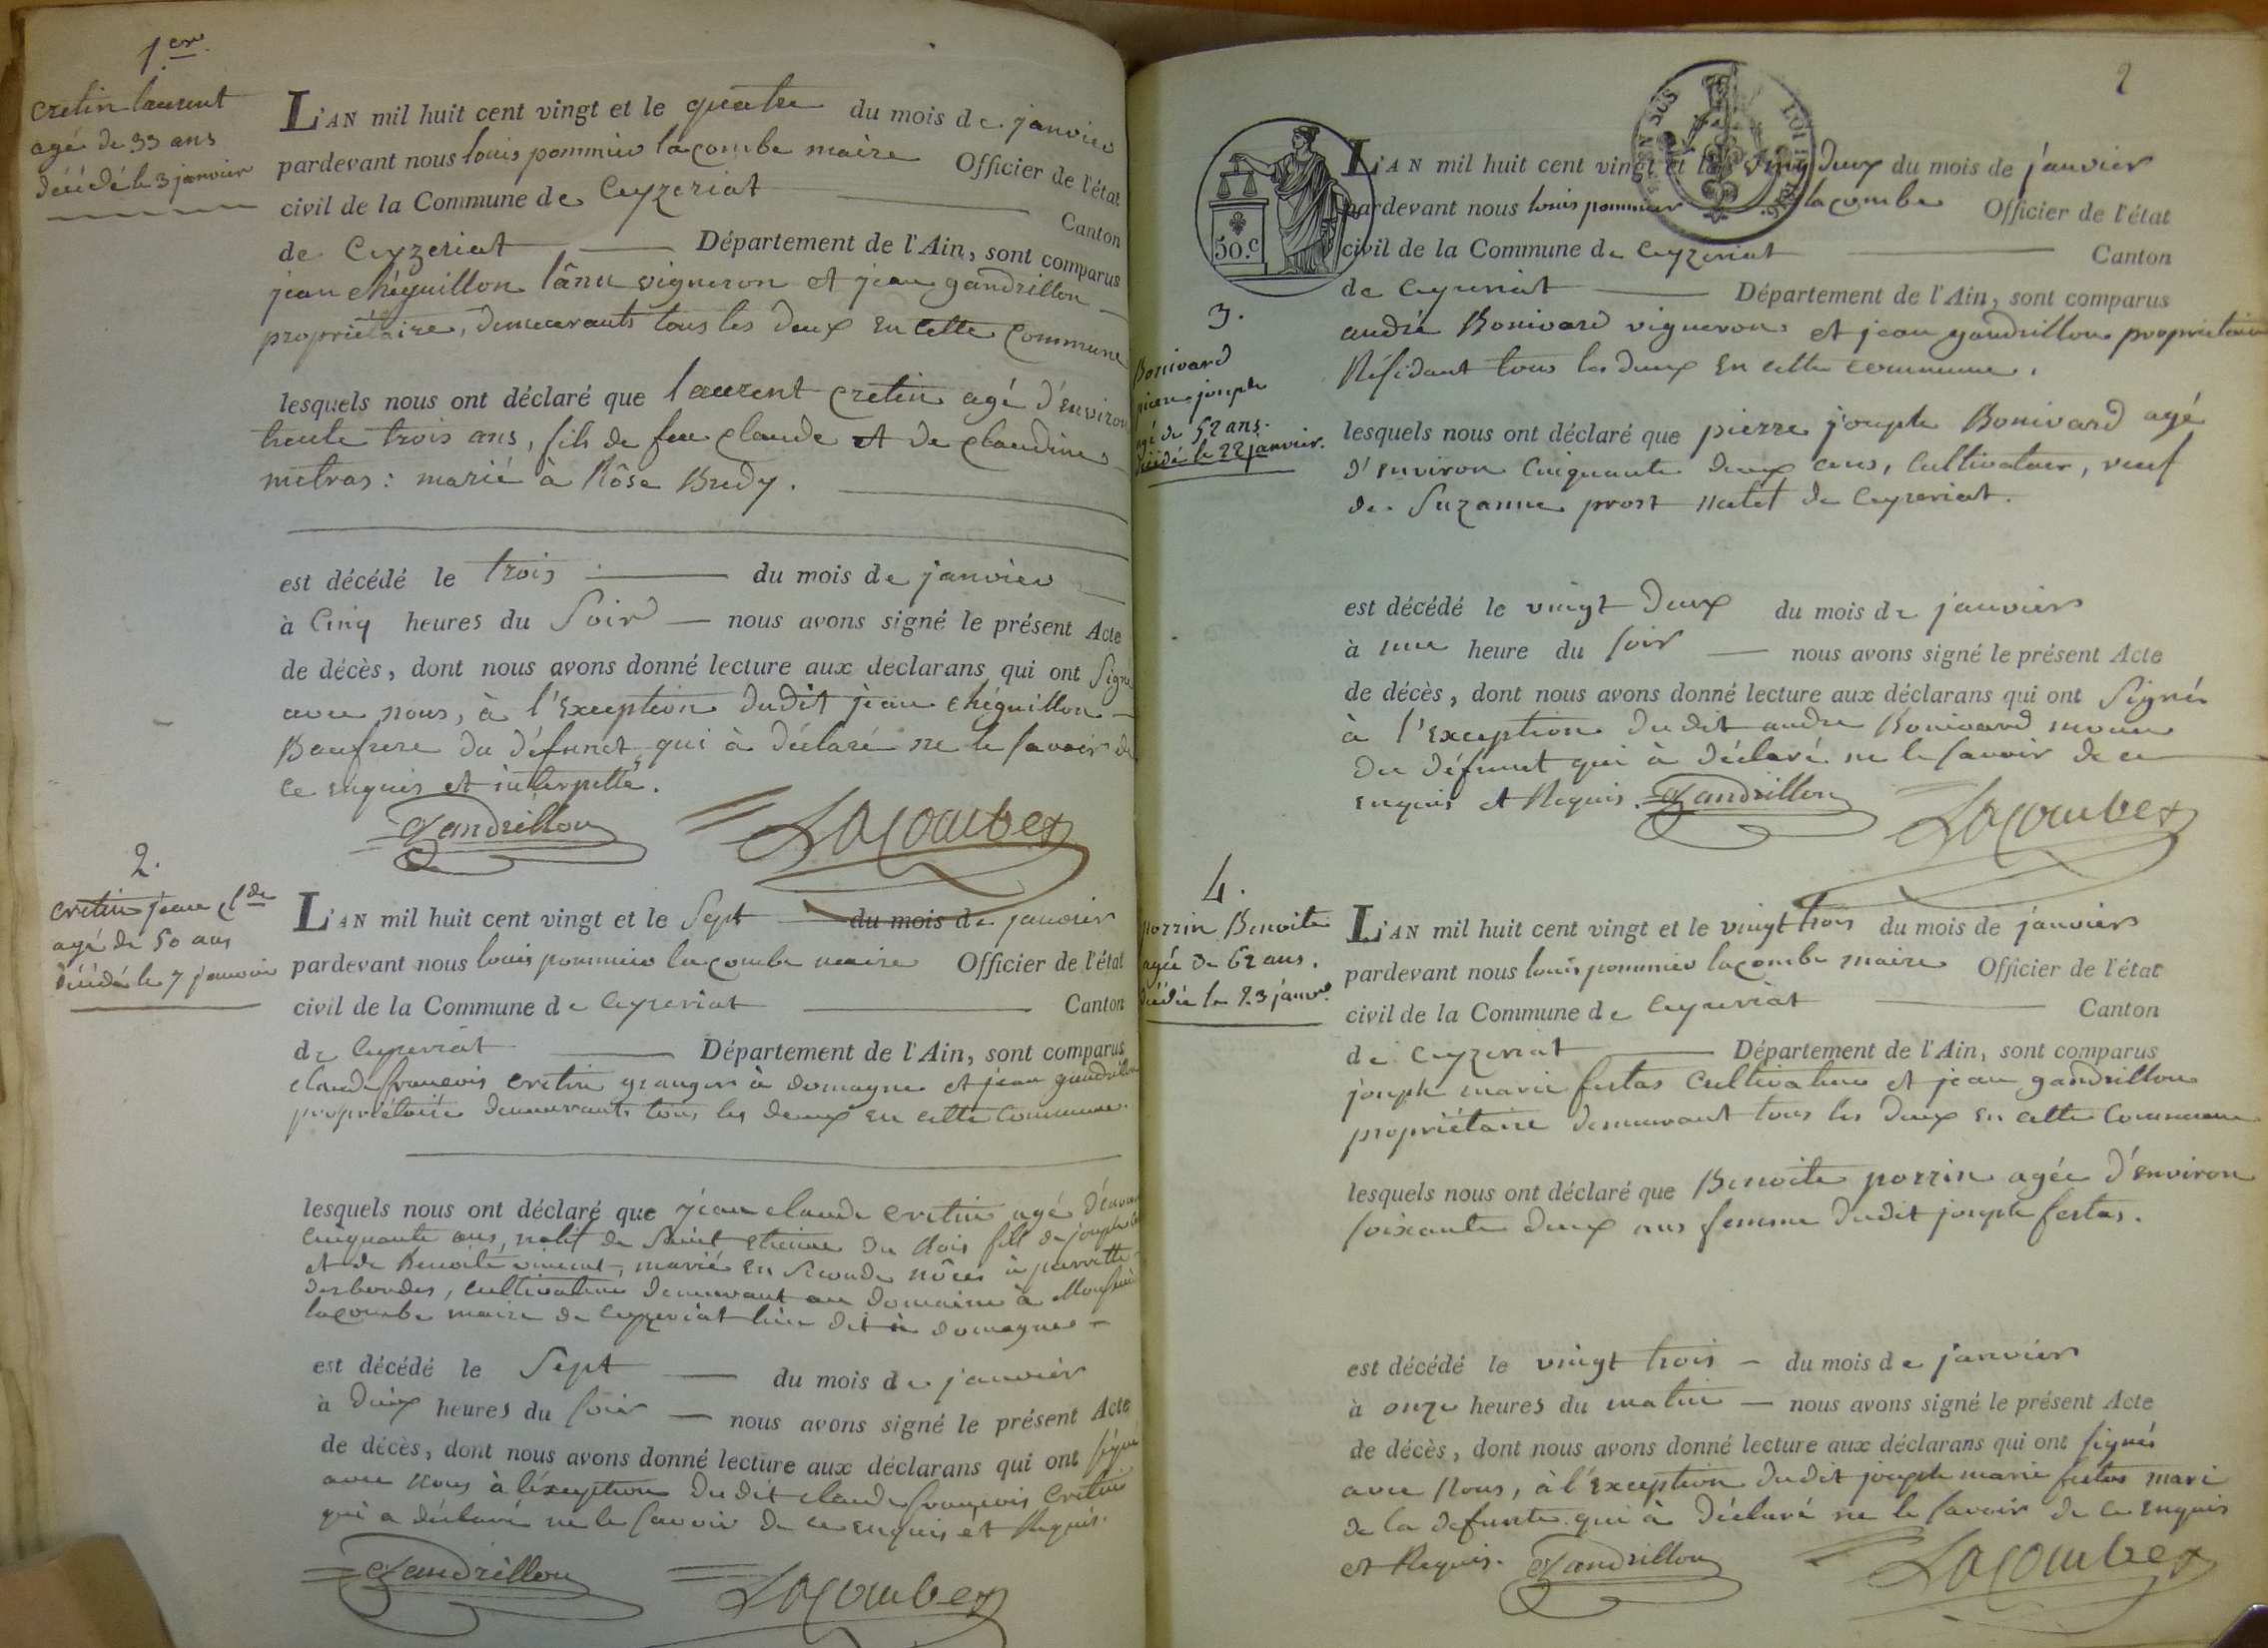 1.er
Cretin laurent
agé de 33 ans
décédé le 3 janvier
L'AN mil huit cent vingt et le quatre du mois de janvier
pardevant nous louis pommier lacombe maire Officier de l'état
civil de la Commune de Ceyzeriat Canton
de Ceyzeriat Département de l'Ain, sont comparus
jean chéguillon l'âné vigneron et jean gandrillon
propriétaire, demeurants tous les deux en cette commune
lesquels nous ont déclaré que laurent cretin agé d'environ
trente trois ans, fils de feu claude et de claudine
metras : marié à Rôse Bredy.
est décédé le trois du mois de janvier
à Cinq heures du Soir nous avons signé le présent Acte
de décès, dont nous avons donné lecture aux declarans qui ont Signé
avec nous, à l'exception dudit jean chéguillon
Baufrere du défunct qui à déclaré ne le savoir de
ce enquis et interpellé.
Gandrillon Lacombe
2.
cretin jean cl.de
agé de 50 ans
décédé le 7 janvier
L'AN mil huit cent vingt et le Sept du mois de janvier
pardevant nous louis pommier lacombe maire Officier de l'état
civil de la Commune de Ceyzeriat Canton
de Ceyzeriat Département de l'Ain, sont comparus
claude françois cretin granger à domagne et jean gandrillon
propriétaire demeurants tous les deux en cette commune.
lesquels nous ont déclaré que jean claude cretin agé d'environ
cinquante ans, natif de Saint etienne du Bois fils de joseph
et de Benoite vincent, marié en seconde nôces à pierrette
desbordes, cultivateur demeurant au domaine à Monsieur
lacombe maire de Ceyzeriat lieu dit à domagne
est décédé le Sept du mois de janvier
à Deux heures du soir nous avons signé le présent Acte
de décès, dont nous avons donné lecture aux déclarans qui ont signé
avec nous à l'exception dudit claude françois cretin
qui a déclaré ne le savoir de ce enquis et Requis.
Gandrillon Lacombe
2
50.c
3.
Bonivard
pierre joseph
agé de 52 ans.
décédé le 22 janvier.
L'AN mil huit cent vingt et le vingt deux du mois de janvier
pardevant nous louis pommier lacombe Officier de l'état
civil de la Commune de Ceyzeriat Canton
de Ceyzeriat Département de l'Ain, sont comparus
andré Bonivard vigneron et jean gandrillon propriétaire
Résidant tous les deux en cette commune.
lesquels nous ont déclaré que pierre joseph Bonivard agé
d'environ Cinquante deux ans, Cultivateur, veuf
de Suzanne prost natif de Ceyzeriat.
est décédé le vingt deux du mois de janvier
à une heure du soir nous avons signé le présent Acte
de décès, dont nous avons donné lecture aux déclarans qui ont Signés
à l'exception dudit andré Bonivard
du défunct qui à déclaré ne le savoir de ce
enquis et Requis. Gandrillon Lacombe
4.
porrin Benoite
agée de 62 ans.
décédée le 23 janv.r
L'AN mil huit cent vingt et le vingt trois du mois de janvier
pardevant nous louis pommier lacombe maire Officier de l'état
civil de la Commune de Ceyzeriat Canton
de Ceyzeriat Département de l'Ain, sont comparus
joseph marie festas Cultivateur et jean gandrillon
propriétaire demeurant tous les deux en cette Commune
lesquels nous ont déclaré que Benoite porrin agée d'environ
soixante deux ans femme dudit joseph festas.
est décédé le vingt trois du mois de janvier
à onze heures du matin nous avons signé le présent Acte
de décès, dont nous avons donné lecture aux déclarans qui ont signés
avec Nous, à l'exception dudit joseph marie festas mari
de la defunte qui à déclaré ne le savoir de ce enquis
et Requis. Gandrillon Lacombe